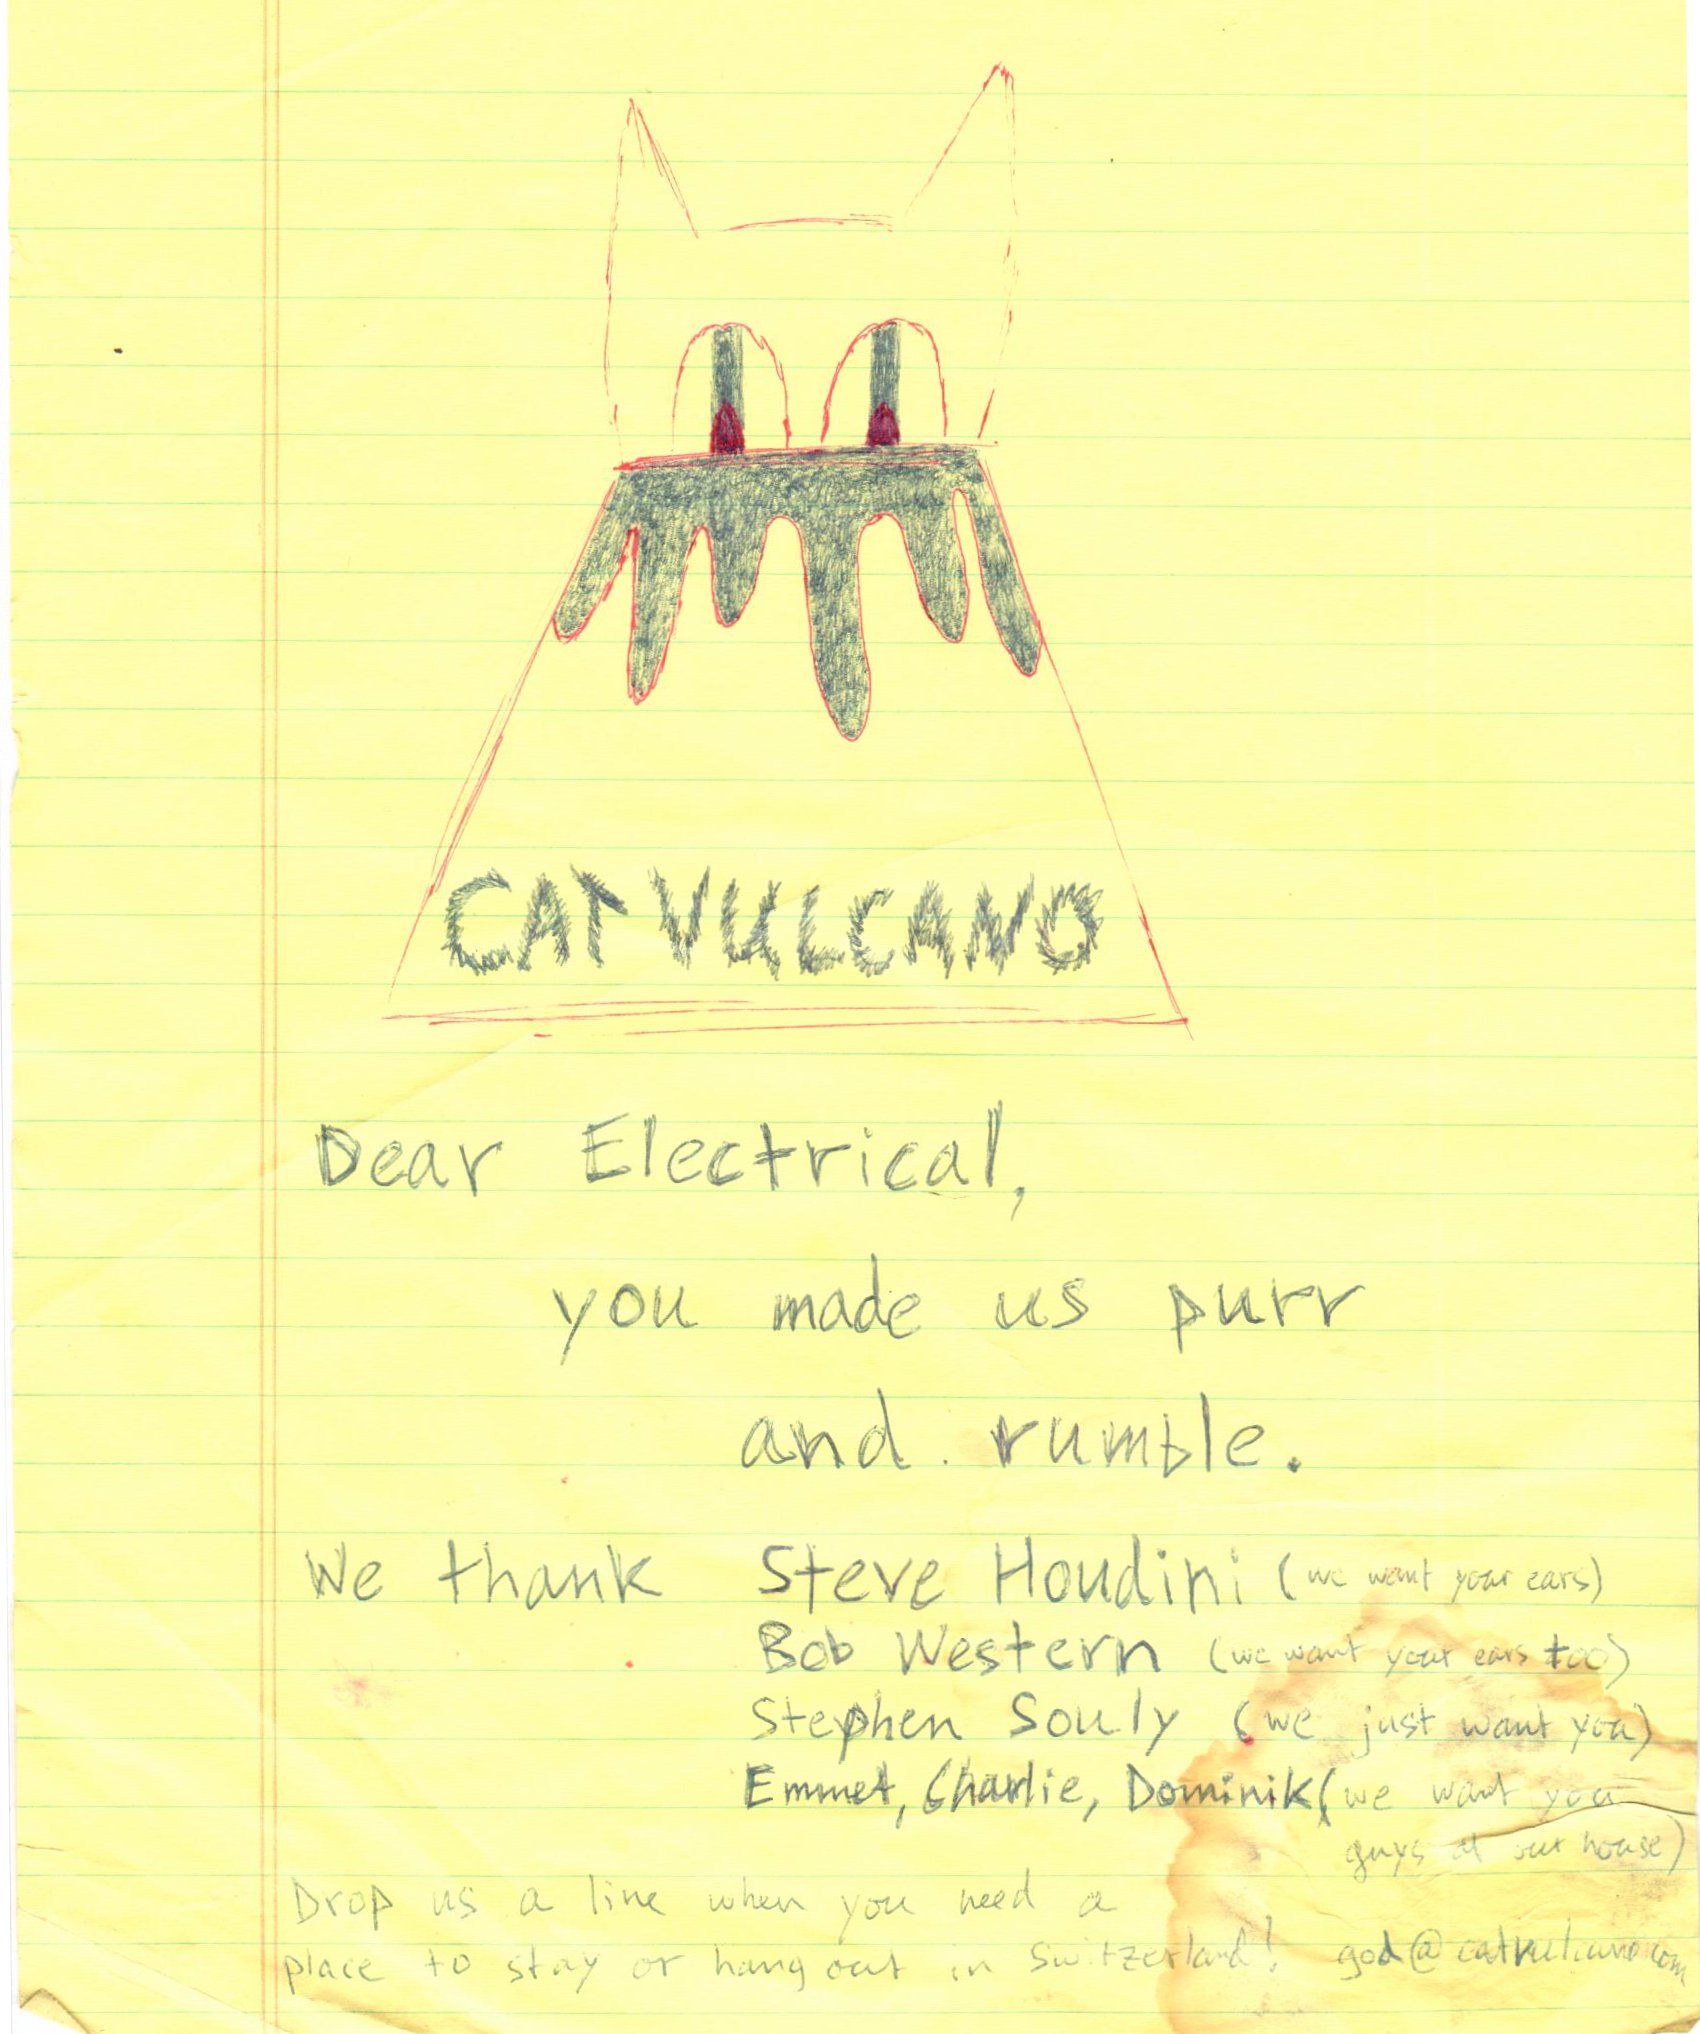 CATVULCANO
Dear Electrical,
you made us purr
and rumble.
We thank Steve Houdini (we want your ears)
Bob Western (we want your ears too)
Stephen Souly (we just want you)
Emmet, Charlie, Dominik (we want you
guys at our house)
Drop us a line when you need a
place to stay or hang out in Switzerland! god@catvulcano.com